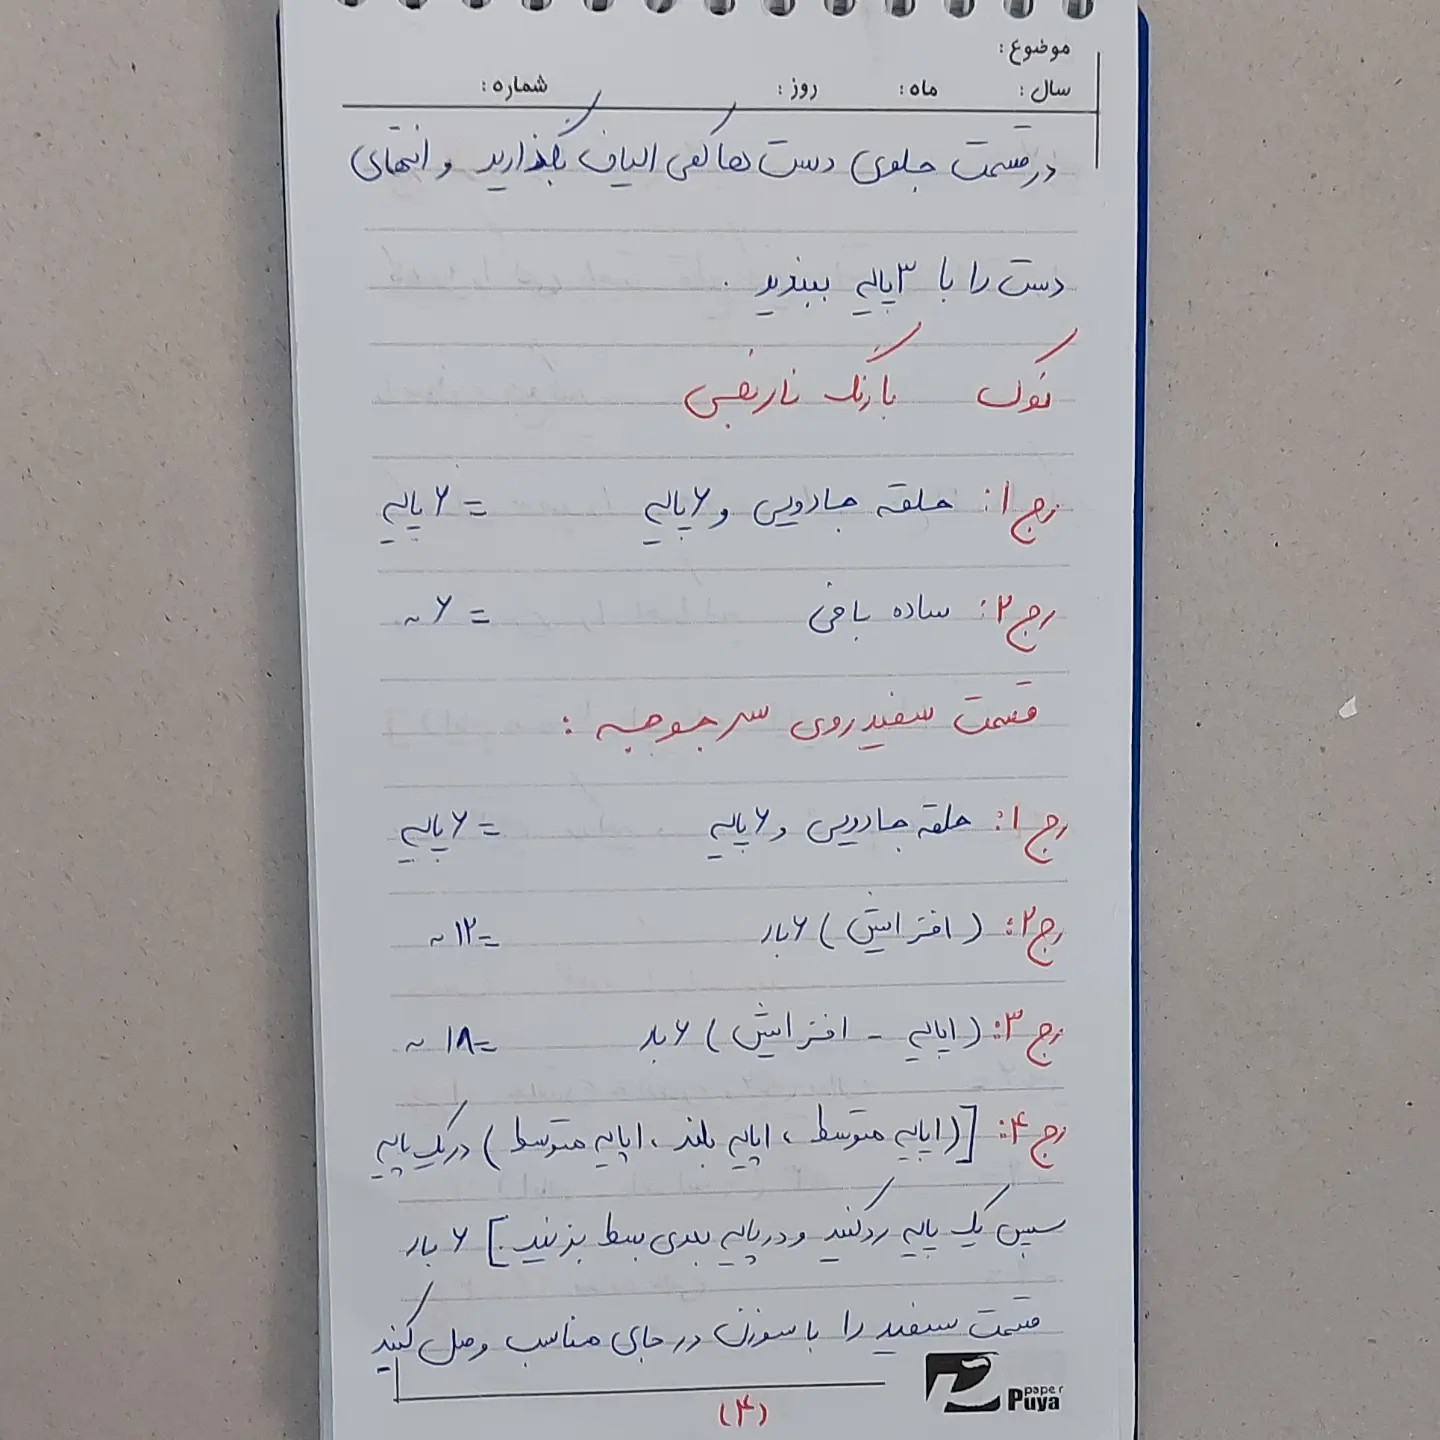 موضوع:
سال: ماه: روز: شماره:
در قسمت جلوی دست ها کمی الیاف بگذارید و انتهای
دست را با ۳ پایه ببندید.
نوک با رنگ نارنجی
رج ۱: حلقه جادویی و ۶ پایه = ۶ پایه
رج ۲: ساده بافی = ۶ ~
قسمت سفید روی سر جوجه:
رج ۱: حلقه جادویی و ۶ پایه = ۶ پایه
رج ۲: (افزایش) ۶ بار = ۱۲ ~
رج ۳: (۱ پایه - افزایش) ۶ بار = ۱۸ ~
رج ۴: [(۱ پایه متوسط، ۱ پایه بلند، ۱ پایه متوسط) در یک پایه
سپس یک پایه رد کنید و در پایه بعدی بسط بزنید.] ۶ بار
قسمت سفید را با سوزن در جای مناسب وصل کنید
paper
Puya
(۴)